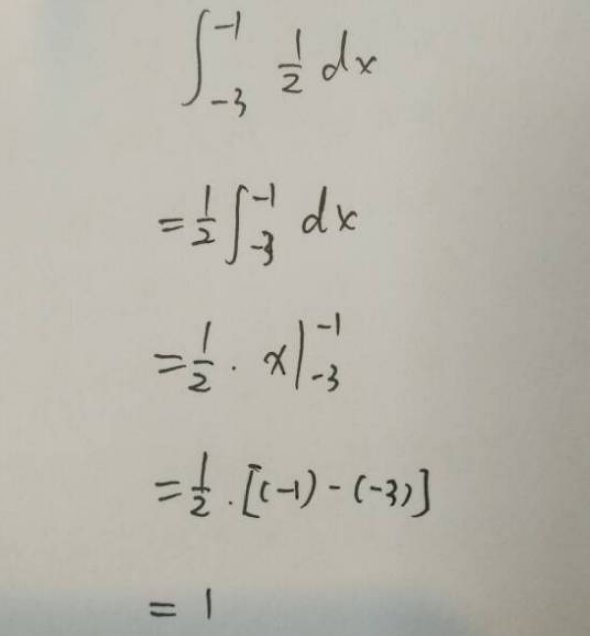 ∫_{-3}^{-1} \frac{1}{2} dx
= \frac{1}{2} ∫_{-3}^{-1} dx
= \frac{1}{2} · x |_{-3}^{-1}
= \frac{1}{2} · [(-1) - (-3)]
= 1